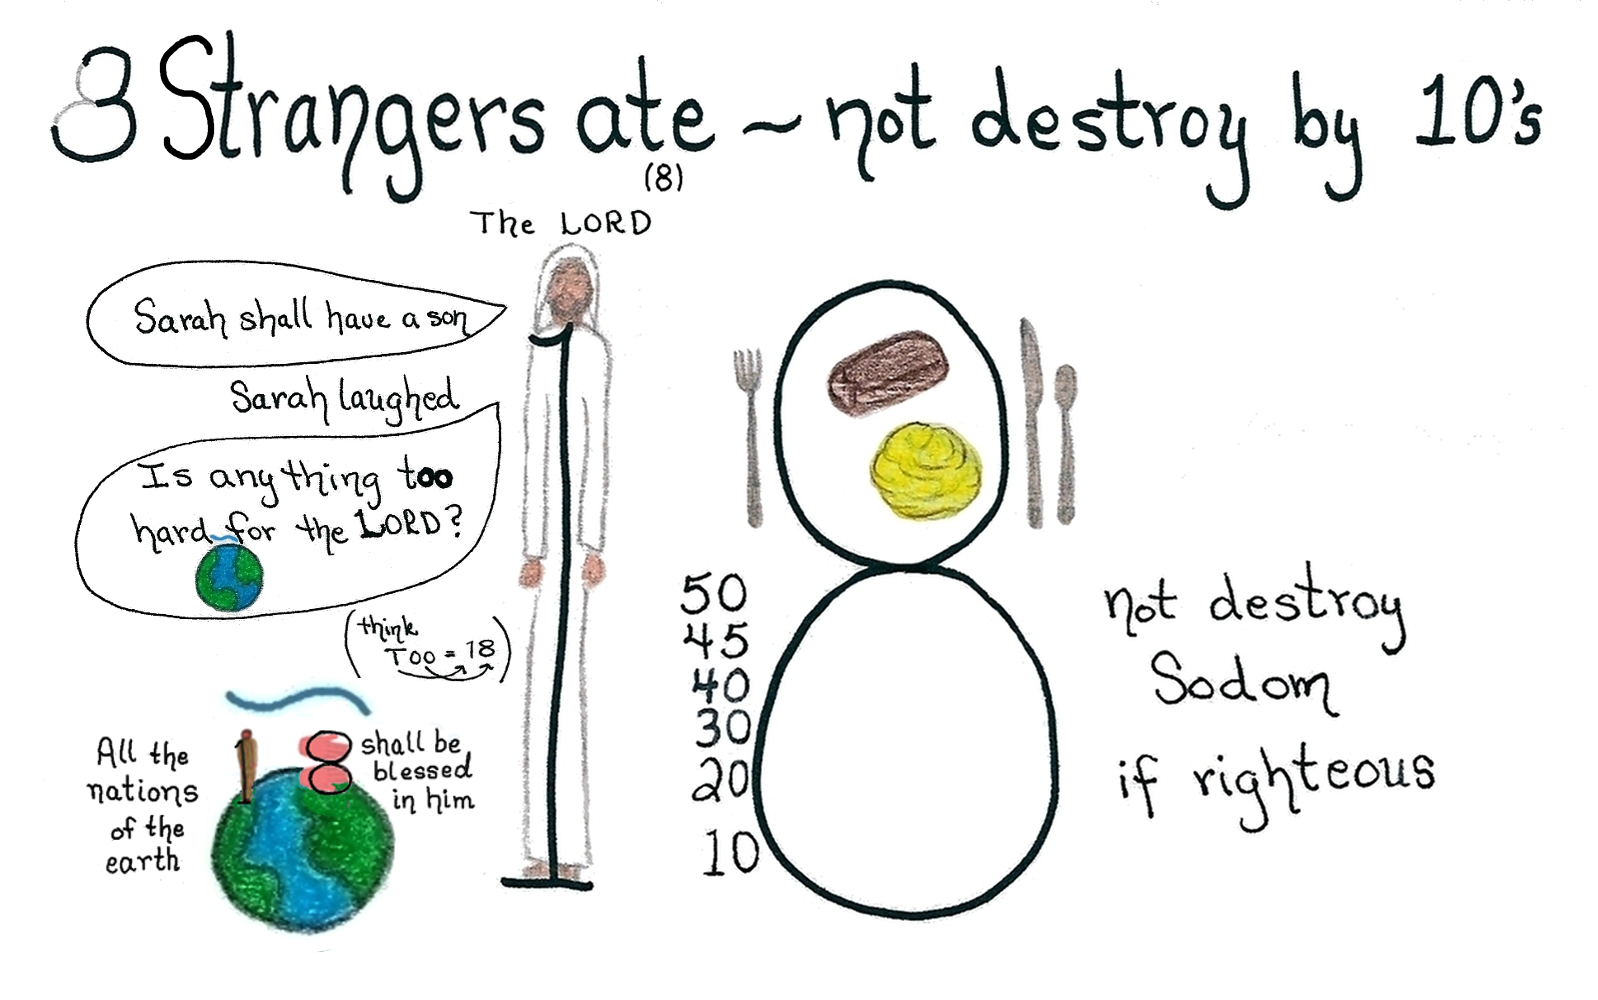 3 Strangers ate ~ not destroy by 10's
(8)
The LORD
Sarah shall have a son
Sarah laughed
Is anything too
hard for the LORD?
(think
Too = 18)
All the
nations
of the
earth
shall be
blessed
in him
50
45
40
30
20
10
not destroy
Sodom
if righteous